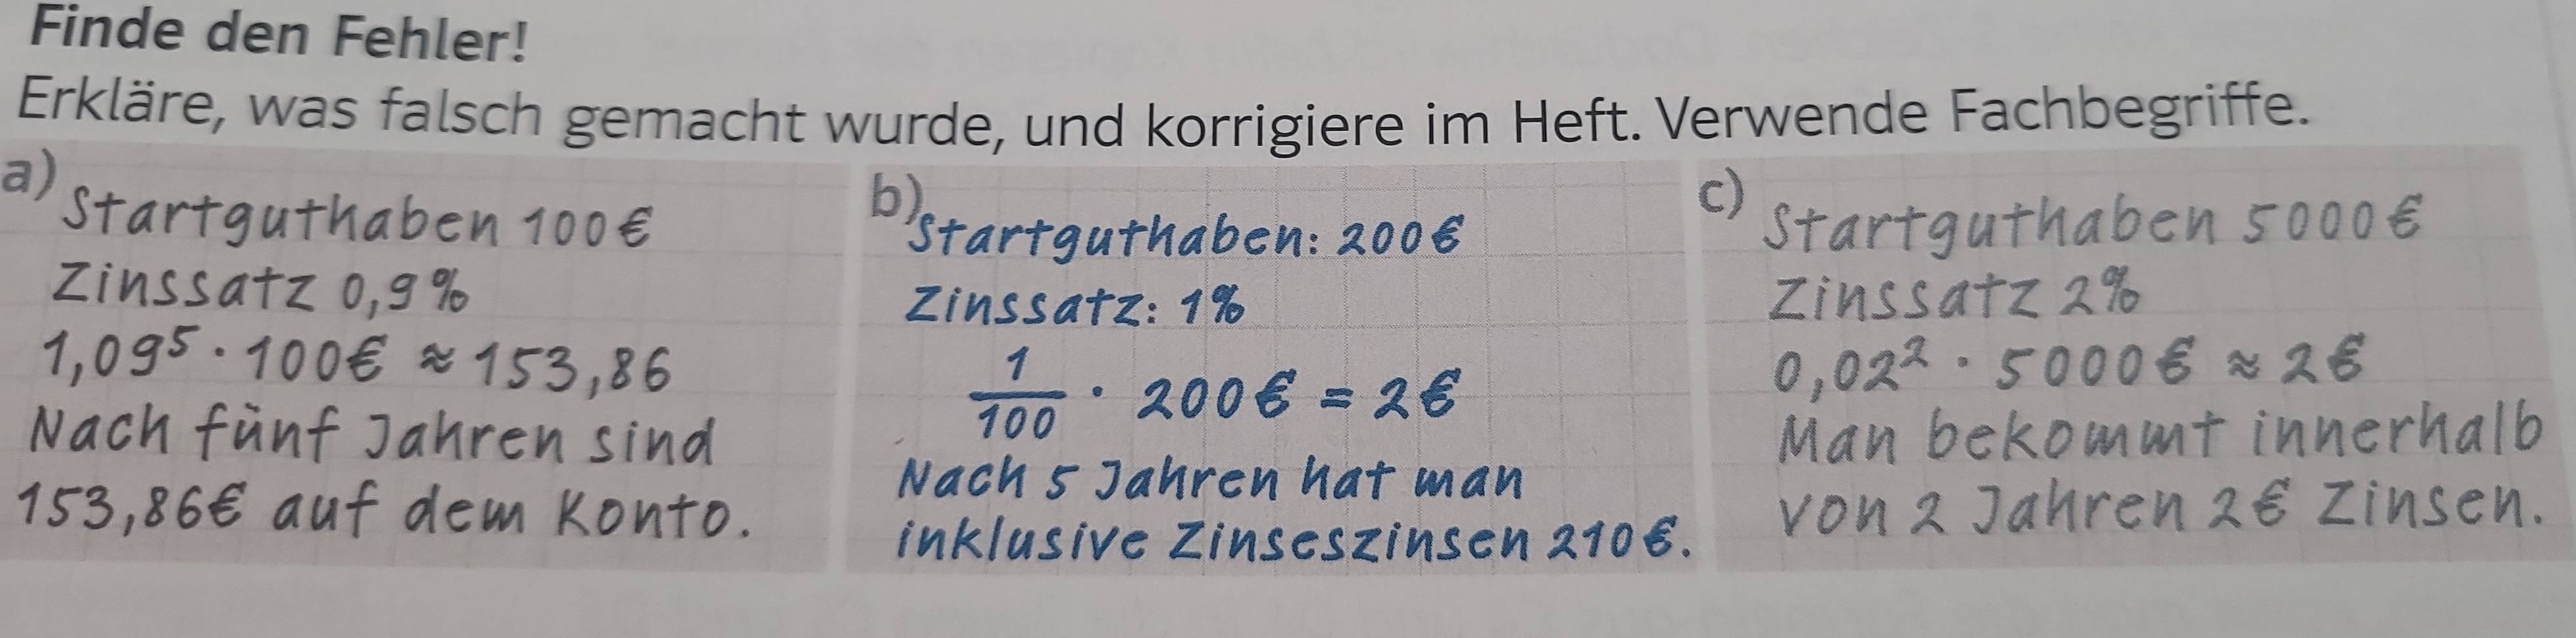 Finde den Fehler!
Erkläre, was falsch gemacht wurde, und korrigiere im Heft. Verwende Fachbegriffe.
a)
Startguthaben 100€
Zinssatz 0,9%
1,09⁵ · 100€ ≈ 153,86
Nach fünf Jahren sind
153,86€ auf dem Konto.
b)
Startguthaben: 200€
Zinssatz: 1%
1/100 · 200€ = 2€
Nach 5 Jahren hat man
inklusive Zinseszinsen 210€.
c)
Startguthaben 5000€
Zinssatz 2%
0,02² · 5000€ ≈ 2€
Man bekommt innerhalb
von 2 Jahren 2€ Zinsen.